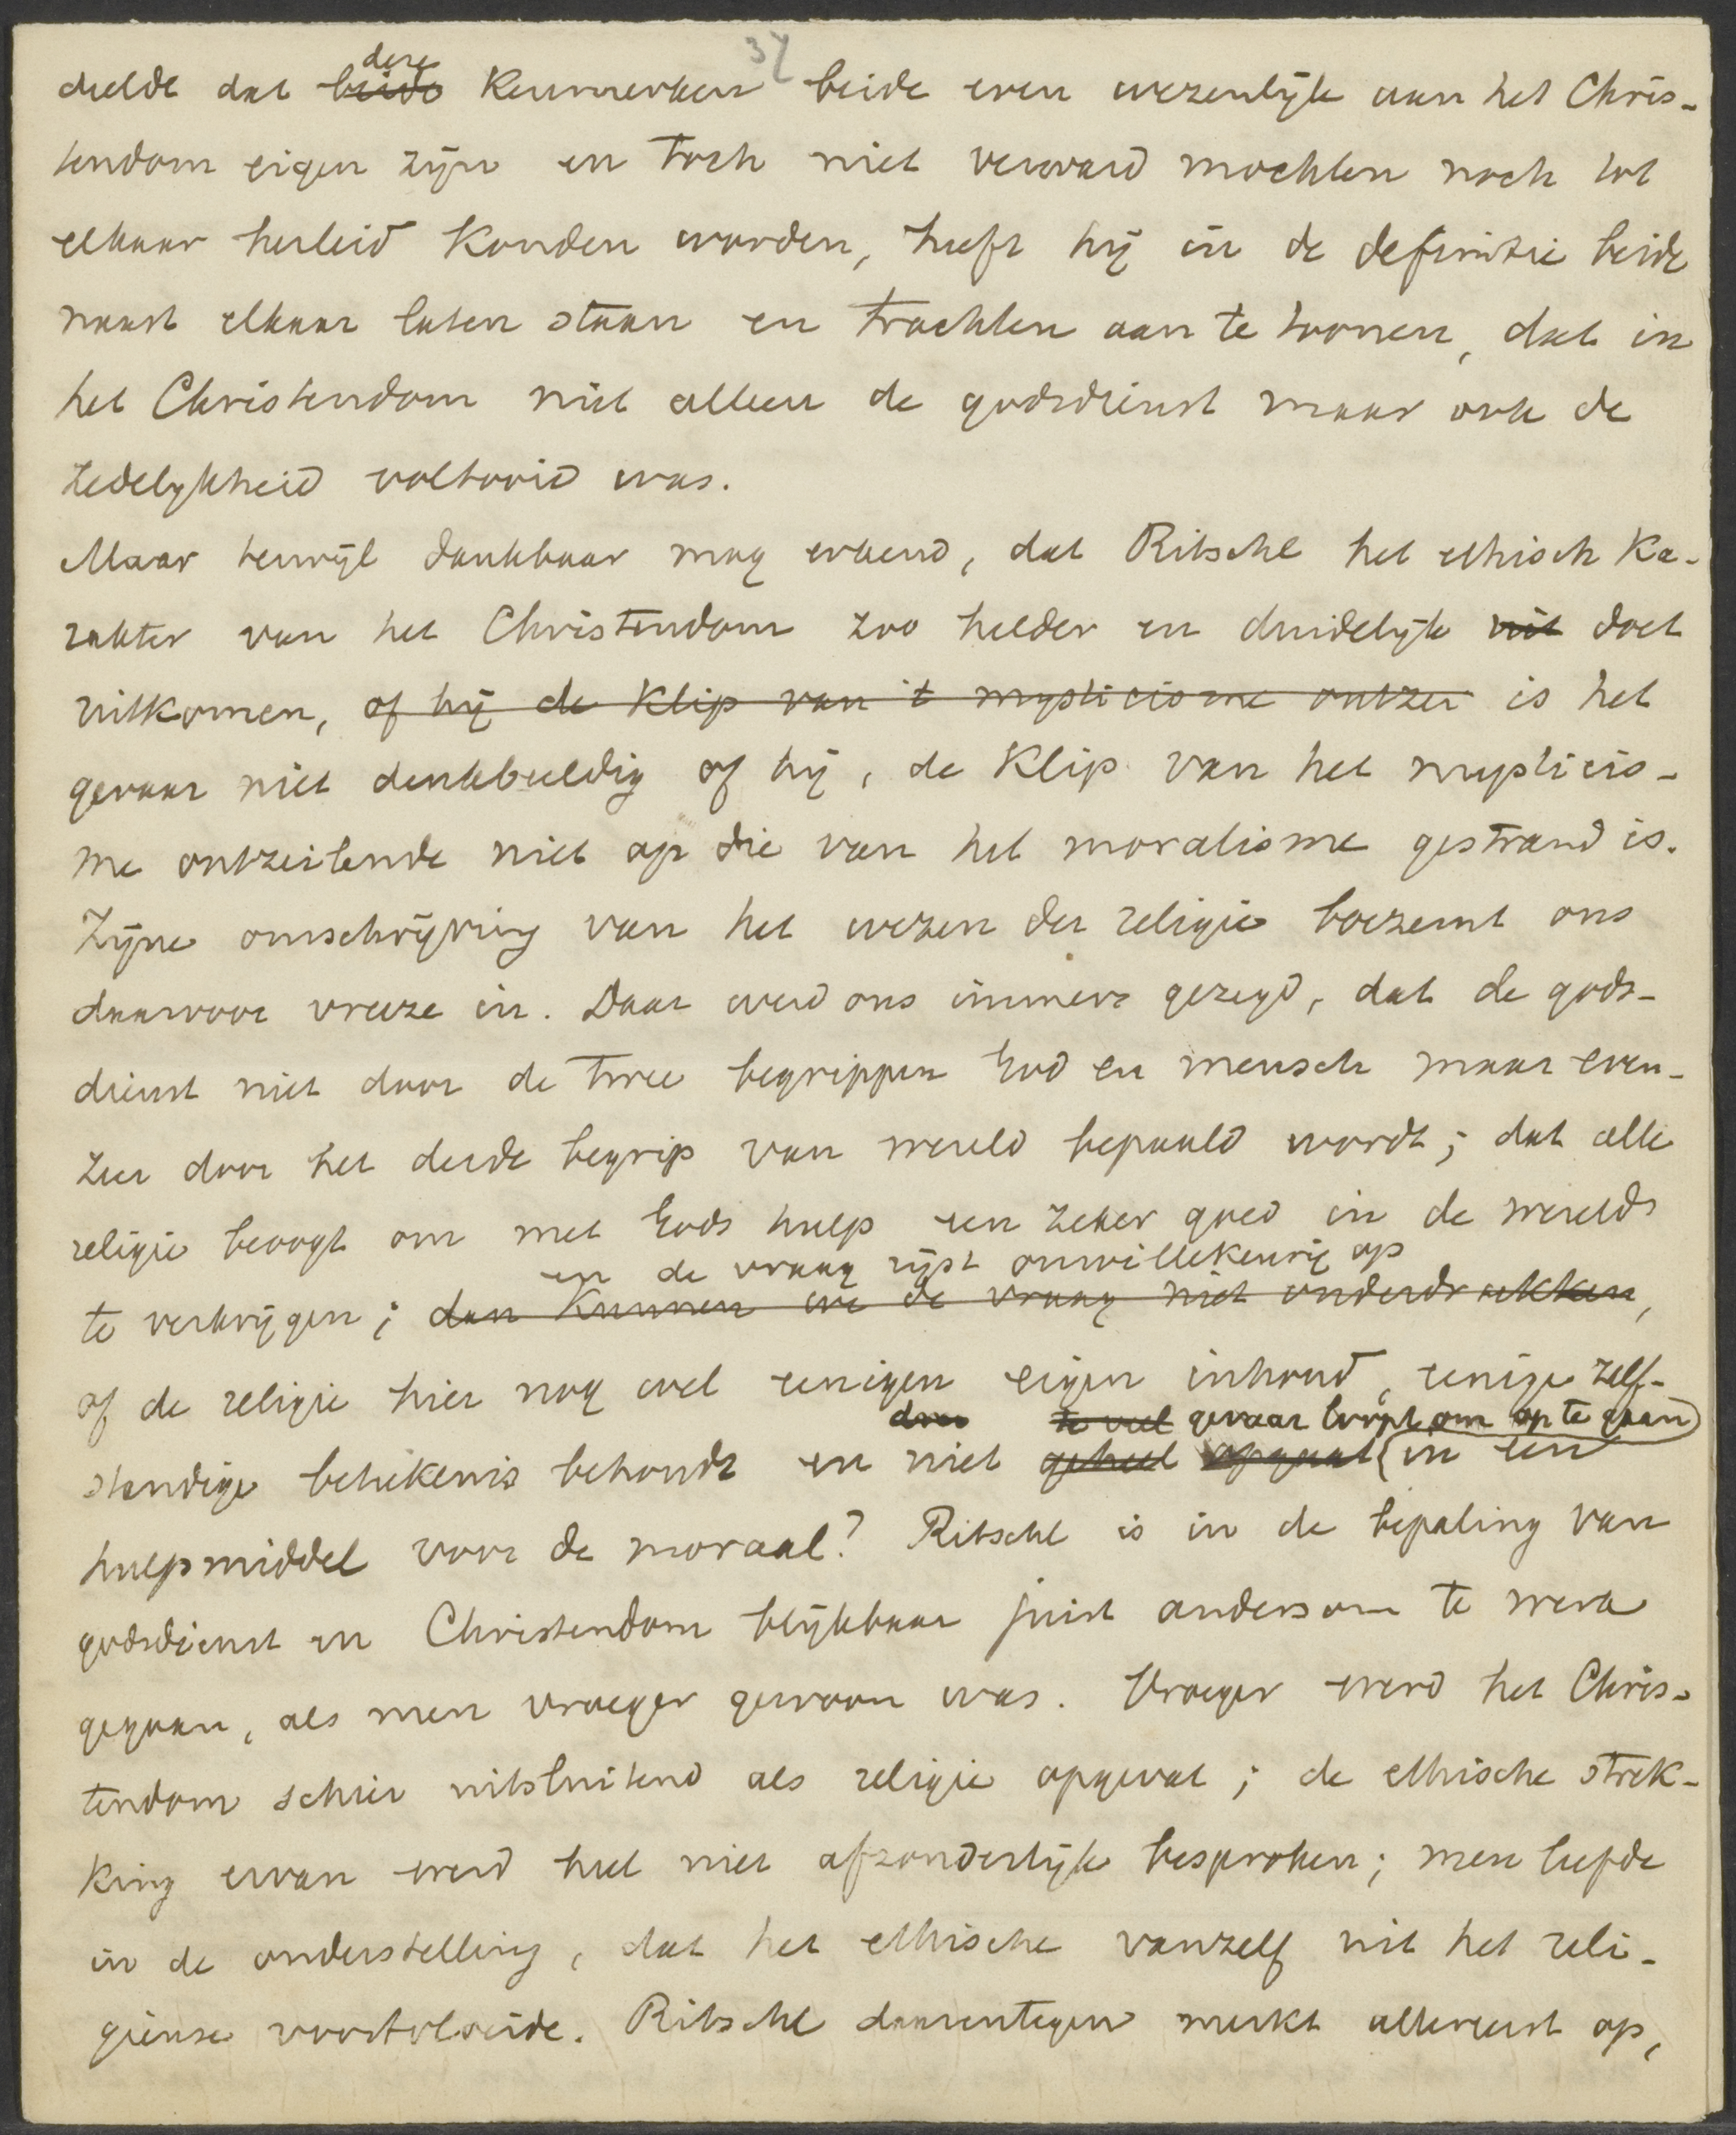 34
deelde dat beide deze kenmerken beide even wezenlijk aan het Chris-
tendom eigen zijn en toch niet verward mochten noch tot
elkaar herleid konden worden, heeft hij in de definitie beide
naast elkaar laten staan en trachten aan te toonen, dat in
het Christendom niet alleen de godsdienst maar ook de
zedelijkheid voltooid was.
Maar terwijl dankbaar mag erkend, dat Ritschl het ethisch ka-
rakter van het Christendom zoo helder en duidelijk uit doet
uitkomen, of hij de klip van 't mysticisme ontzei is het
gevaar niet denkbeeldig of hij, de klip van het mysticis-
me ontzeilende niet op die van het moralisme gestrand is.
Zijne omschrijving van het wezen der religie boezemt ons
daarvoor vreeze in. Daar werd ons immers gezegd, dat de gods-
dienst niet door de twee begrippen God en mensch maar even-
zeer door het derde begrip van wereld bepaald wordt; dat alle
religie beoogt om met Gods hulp een zeker goed in de wereld
en de vraag rijst onwillekeurig op
te verkrijgen; dan kunnen we de vraag niet onderdrukken,
of de religie hier nog wel eenigen eigen inhoud, eenige zelf-
te veel gevaar loopt om op te gaan
standige betekenis behoudt en niet geheel opgaat in een
hulpmiddel voor de moraal? Ritschl is in de bepaling van
godsdienst en Christendom blijkbaar juist andersom te werk
gegaan, als men vroeger gewoon was. Vroeger werd het Chris-
tendom schier uitsluitend als religie opgevat; de ethische strek-
king ervan werd heel niet afzonderlijk besproken; men leefde
in de onderstelling, dat het ethische vanzelf uit het reli-
gieuse voortvloeide. Ritschl daarentegen merkt allereerst op,